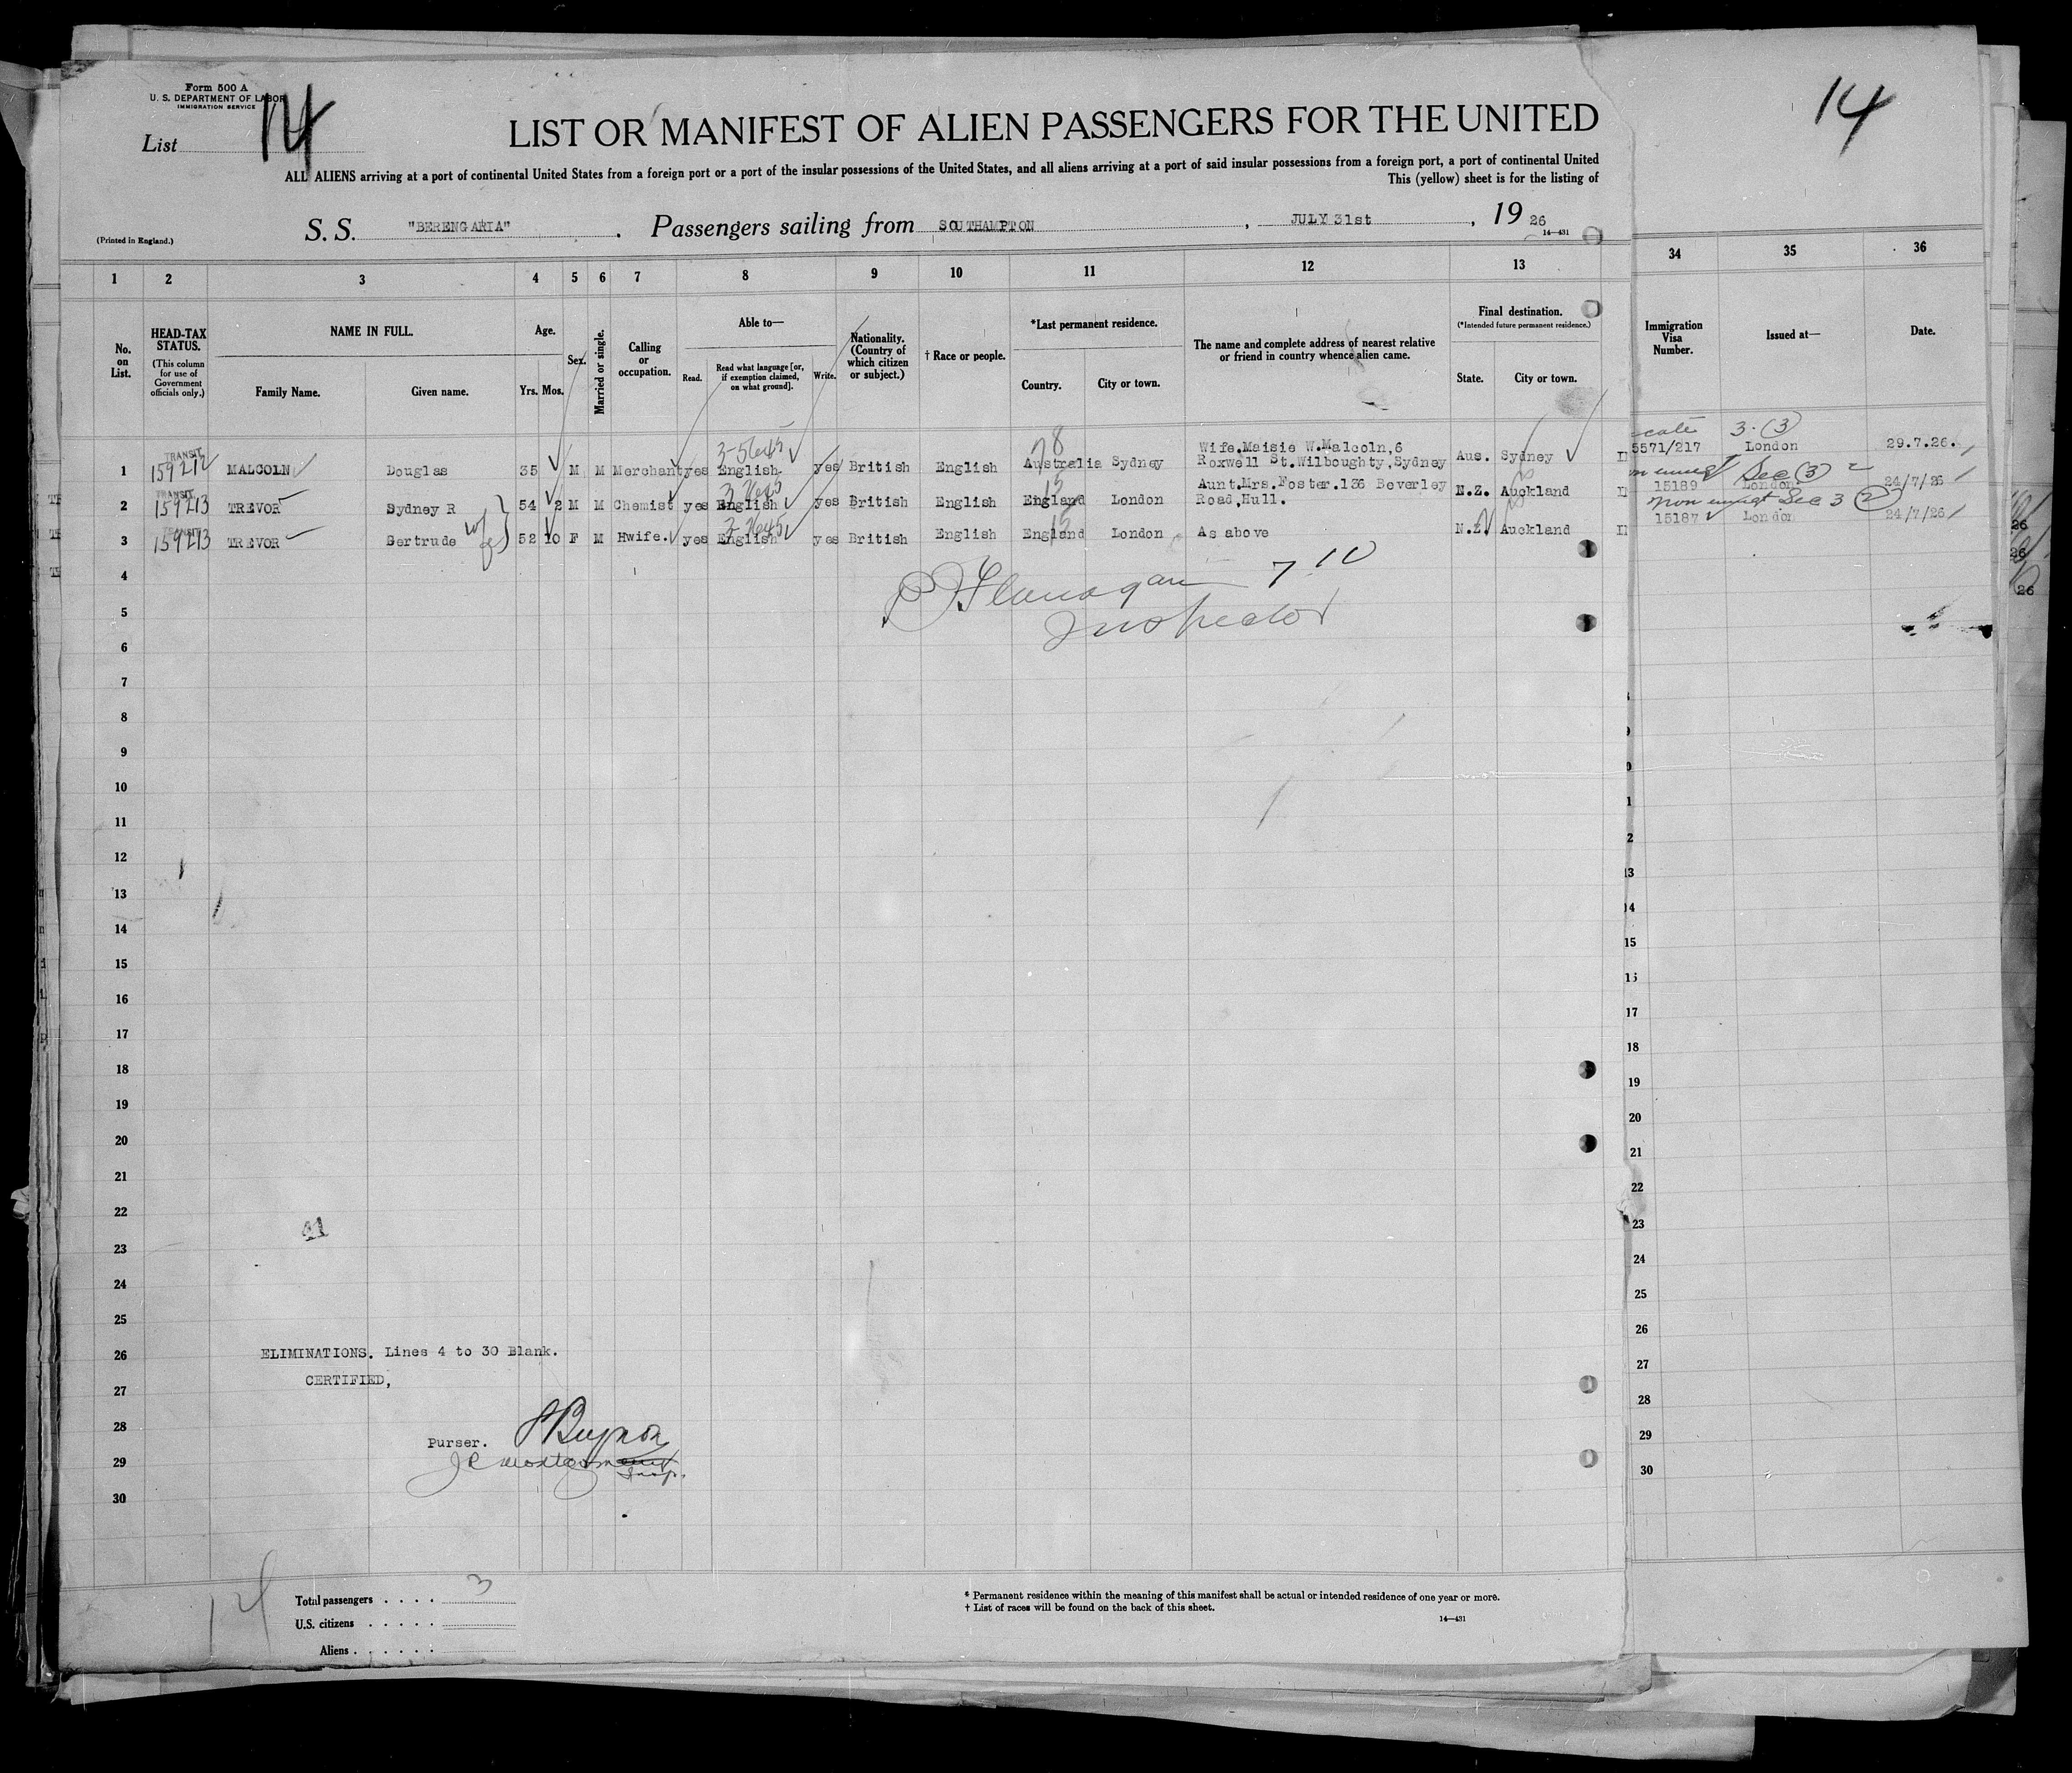 Form 500 A
U. S. DEPARTMENT OF LABOR
IMMIGRATION SERVICE
List 14
14
LIST OR MANIFEST OF ALIEN PASSENGERS FOR THE UNITED
ALL ALIENS arriving at a port of continental United States from a foreign port or a port of the insular possessions of the United States, and all aliens arriving at a port of said insular possessions from a foreign port, a port of continental United
This (yellow) sheet is for the listing of
(Printed in England.)
S. S. "BERENGARIA" . Passengers sailing from SOUTHAMPTON , JULY 31st , 19 26
14—431
1 2 3 4 5 6 7 8 9 10 11 12 13 34 35 36
No. on List.
HEAD-TAX STATUS.
(This column for use of Government officials only.)
NAME IN FULL.
Family Name. Given name.
Age.
Yrs. Mos.
Sex.
Married or single.
Calling or occupation.
Able to—
Read. Read what language [or, if exemption claimed, on what ground]. Write.
Nationality. (Country of which citizen or subject.)
† Race or people.
*Last permanent residence.
Country. City or town.
The name and complete address of nearest relative or friend in country whence alien came.
Final destination.
(*Intended future permanent residence.)
State. City or town.
Immigration Visa Number.
Issued at—
Date.
1 TRANSIT 159212 MALCOLN Douglas 35 M M Merchant yes English yes British English Australia Sydney Wife.Maisie W.Malcoln,6 Roxwell St.Wilboughty,Sydney Aus. Sydney 5571/217 London 29.7.26.
3 (3)
78
2 TRANSIT 159213 TREVOR Sydney R 54 2 M M Chemist yes English yes British English England London Aunt.Mrs.Foster.136 Beverley Road,Hull. N.Z. Auckland 15189 London 24/7/26
Sec (3) 2
15
3 TRANSIT 159213 TREVOR Gertrude wife 52 10 F M Hwife. yes English yes British English England London As above N.Z. Auckland 15187 London 24/7/26
non immgt Sec 3 (2)
15
4
Flanagan 7 10
5
Inspector
6
7
8
9
10
11
12
13
14
15
16
17
18
19
20
21
22
23
24
25
26 ELIMINATIONS. Lines 4 to 30 Blank.
27 CERTIFIED,
28
Purser.
29
Insp.
30
41
14
Total passengers . . . . 3
U.S. citizens . . . . .
Aliens . . . . . .
* Permanent residence within the meaning of this manifest shall be actual or intended residence of one year or more.
† List of races will be found on the back of this sheet.
14—431